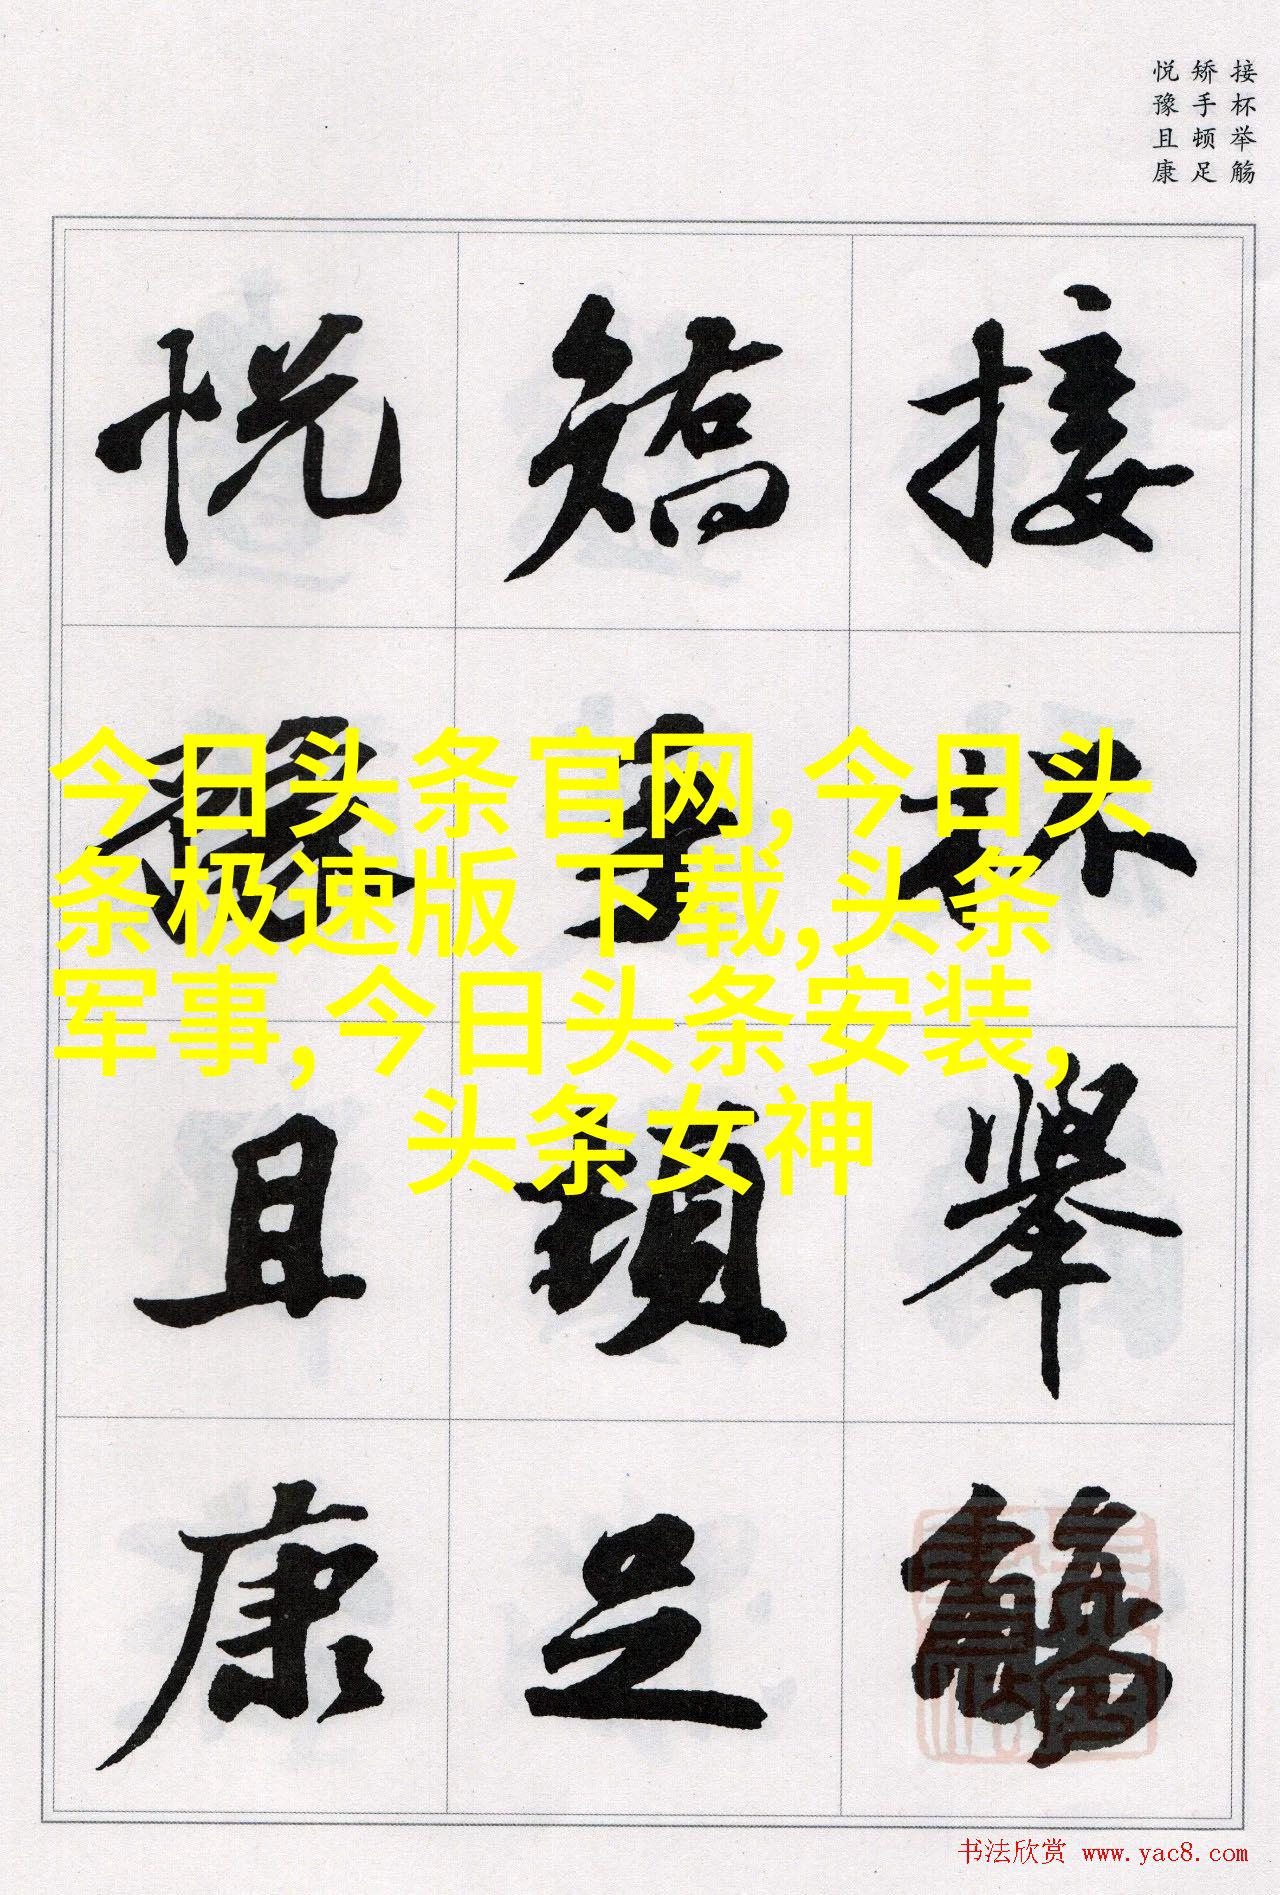 接杯举觞
矫手顿足
悦豫且康
接杯舉觴
矯手頓足
悦豫且康
今日头条官网,今日头
条极速版 下载,头条
军事,今日头条安装,
头条女神
书法欣赏 www.yac8.com